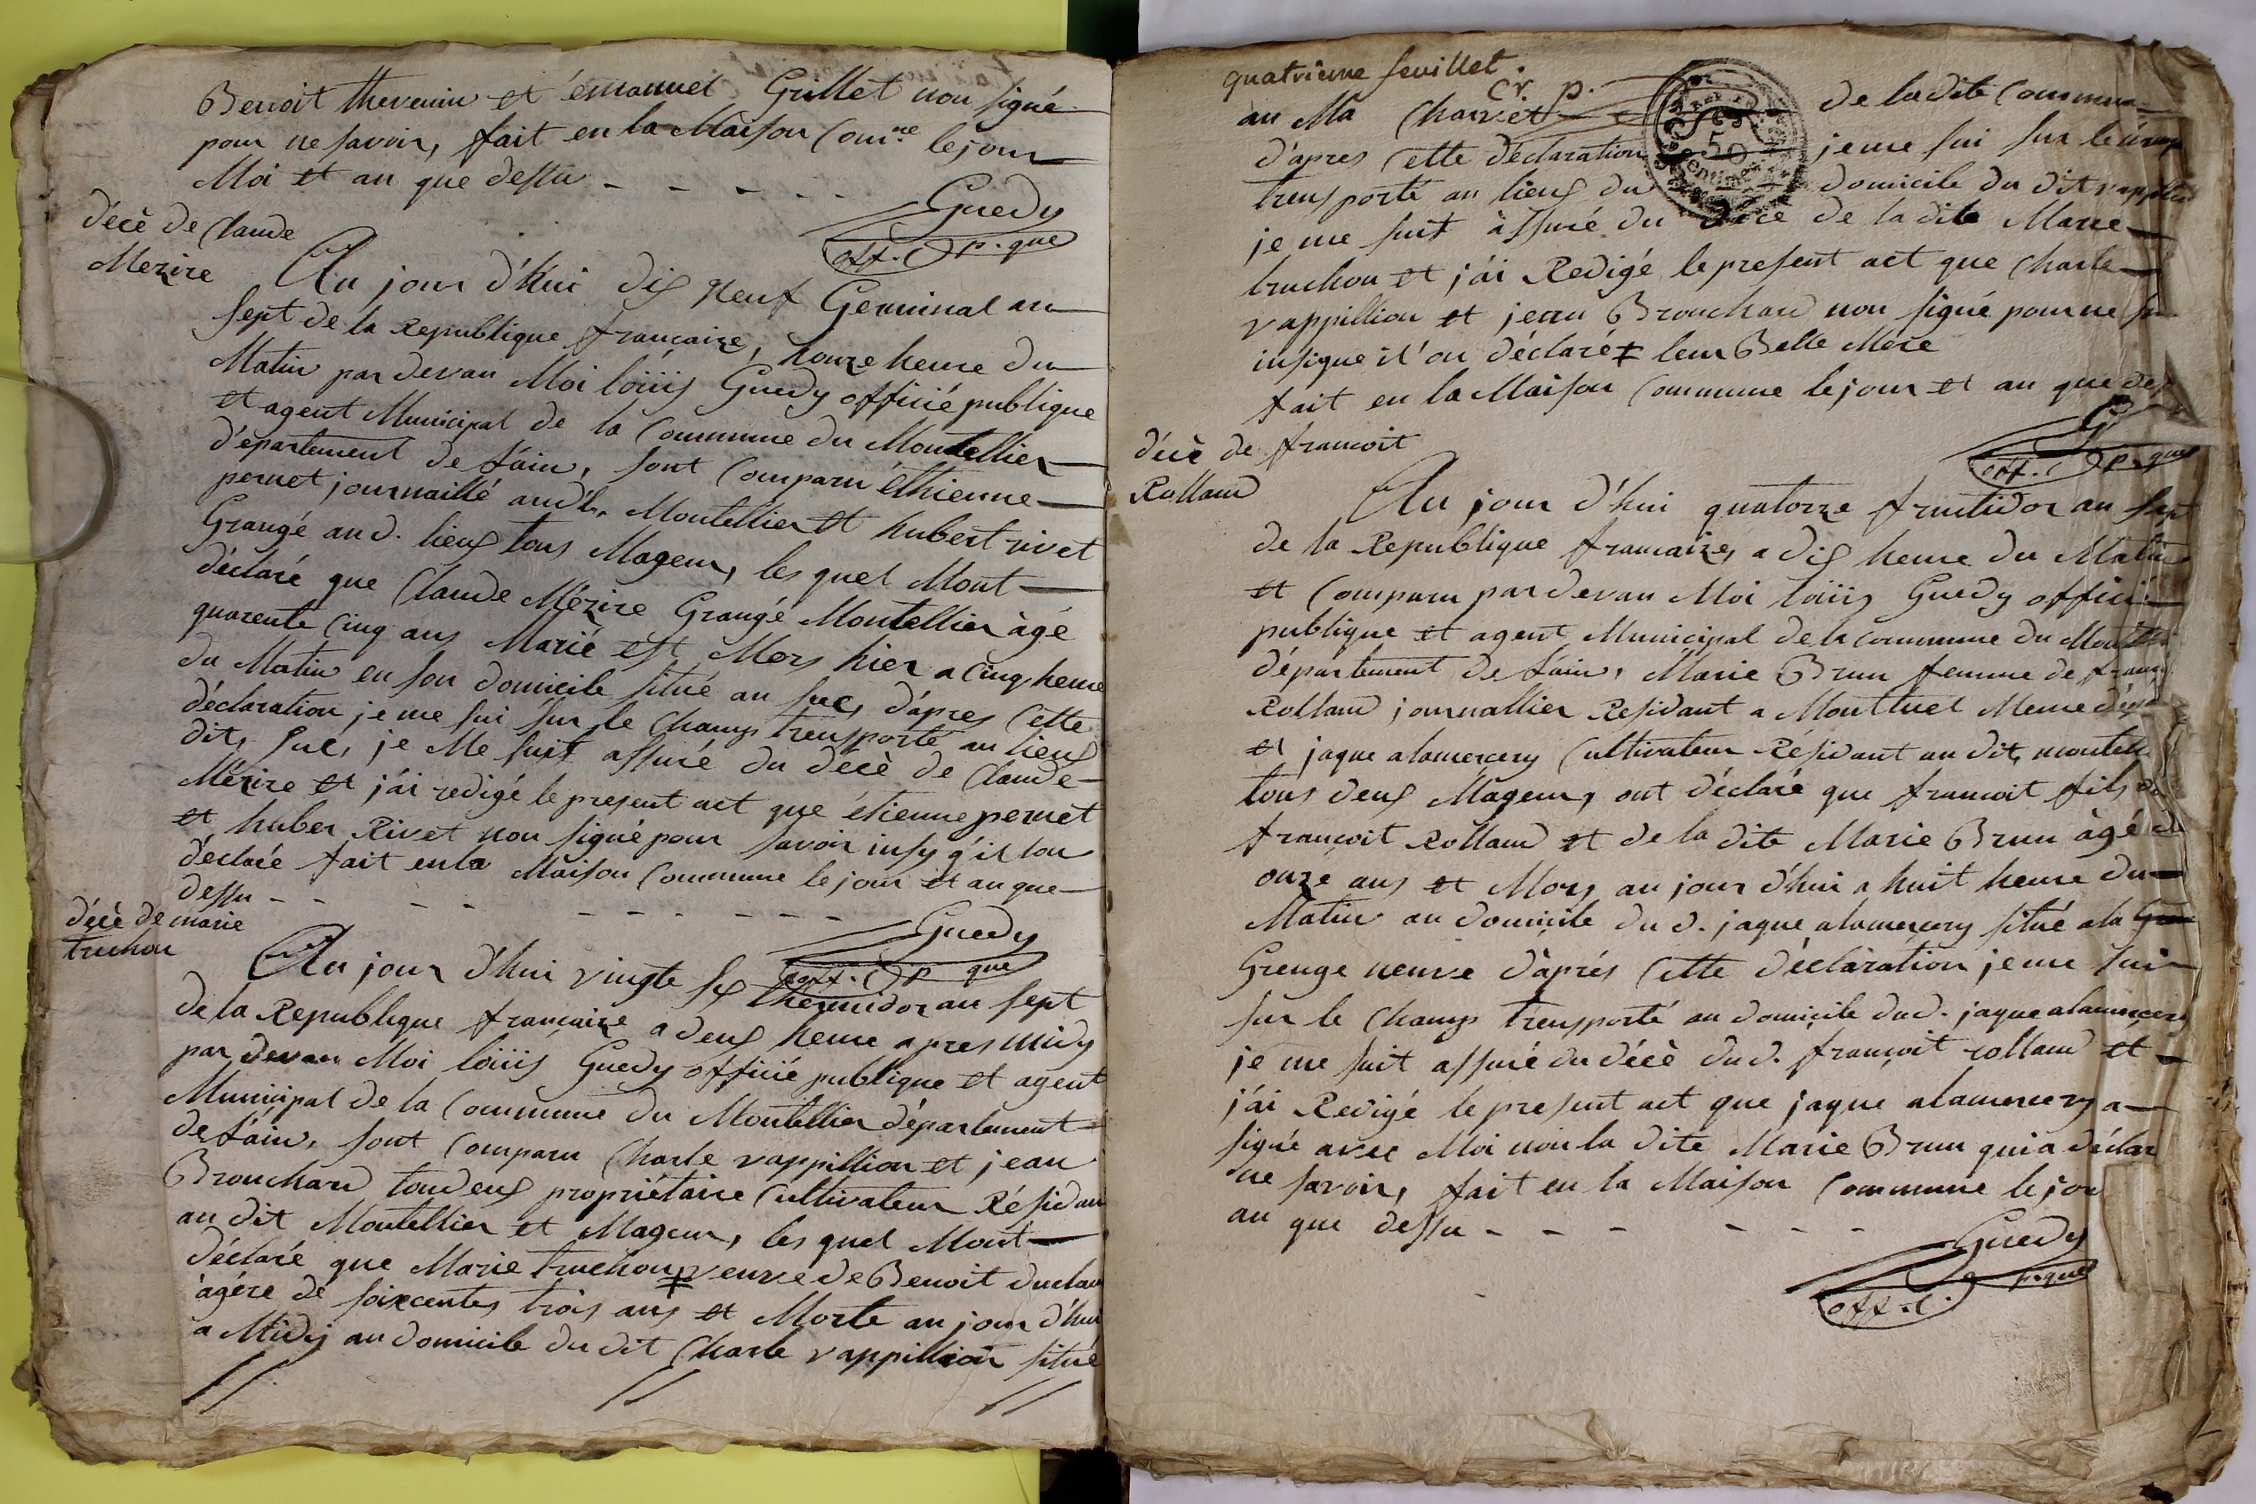 Benoit thevenin et émanuel Grillet non signé
pour ne savoir, fait en la Maison Comne le jour
Moi et an que dessu - - - - -
Guedy
off. C p.que
décè de Claude
Mezire
Au jour d'hui dix Neuf Germinal an
sept de la Republique francaize, honze heure du
Matin par devan Moi loüis Guedy officié publique
et agent Municipal de la Commune du Montellier
département de Láin, sont Comparu éthienne
pernet journaillé audt. Montellier et hubert rivet
Grangé au d. lieux tous Mageur, les quel Mont
déclaré que Claude Mézire Grangé Montellier àgé
quarente Cinq ans Marié est Mors hier a Cinq heure
du Matin en son domicile situé au suc, d'apres Cette
déclaration je me sui sur le Champs trensporté au lieux
dit, suc, je Me suit assuré du décè de Claude
Mézire et j'ái redigé le present act que étienne pernet
et huber Rivet non signé pour savoir insy q'il lon
déclaré fait en la Maison Commune le jour et an que
dessu - - - - - - - - - -
Guedy
off. C p que
décè de marie
truchon
Au jour d'hui vingte six thermidor an sept
de la Republique francaize a deux heure apres midy
par devan Moi loüis Guedy officié publique et agent
Municipal de la Commune du Montellier département
de Láin, sont Comparu Charle vappillion et jean
Brouchard toudeux propriétaire Cultivateur Résidan
au dit Montellier et Mageur, les quel Mont
déclaré que Marie truchon ‡ veuve de Benoit duclau
àgére dé soixcentes trois ans et Morte au jour d'hui
a Midy au domicile du dit Charle vappillion situé
quatrieme feuillet.
Cr. p.
au Ma Charvet de la dite Commune
d'apres Cette déclaration je me sui sur le
trensporté au lieux du domicile du dit vappillion
je me suit àssuré du décé de la dite Marie
truchon et j'ái Redigé le present act que Charle
vappillion et jean Brouchard non signé pour ne
insique il'on déclaré ‡ leur Belle Mére
fait en la Maison Commune le jour et an que des
G
off. C p.que
décè de francoit
Rolland
Au jour d'hui quatorze fructidor an sept
de la Republique francaize, a dix heure du Matin
et Comparu par devan Moi loüis Guedy officié
publique et agent Municipal de la commune du Montelli
département de Láin, Marie Brun femme de franc
Rolland journallier Residant a Montluel Meme dép
et jaque alamercery Cultivateur Résidant au dit, montell
tous deux Mageur, ont déclaré que francoit fils de
françoit Rolland et de la dite Marie Brun àgé de
onze ans et Mors au jour d'hui a huit heure du
Matin au domicile du d. jaque alamercery situé a la
Grenge neuve d'aprés Cette déclaration je me suis
sur le Champs trensporté au domicile du d. jaque alamercery
je me suit assuré du décè du d. françoit rolland et
j'ái Redigé le present act que jaque alamercery a
signé avec Moi non la dite Marie Brun qui a déclar
ne savoir, fait en la Maison Commune le jou
an que dessu - - - - - -
Guedy
off. C. p.que